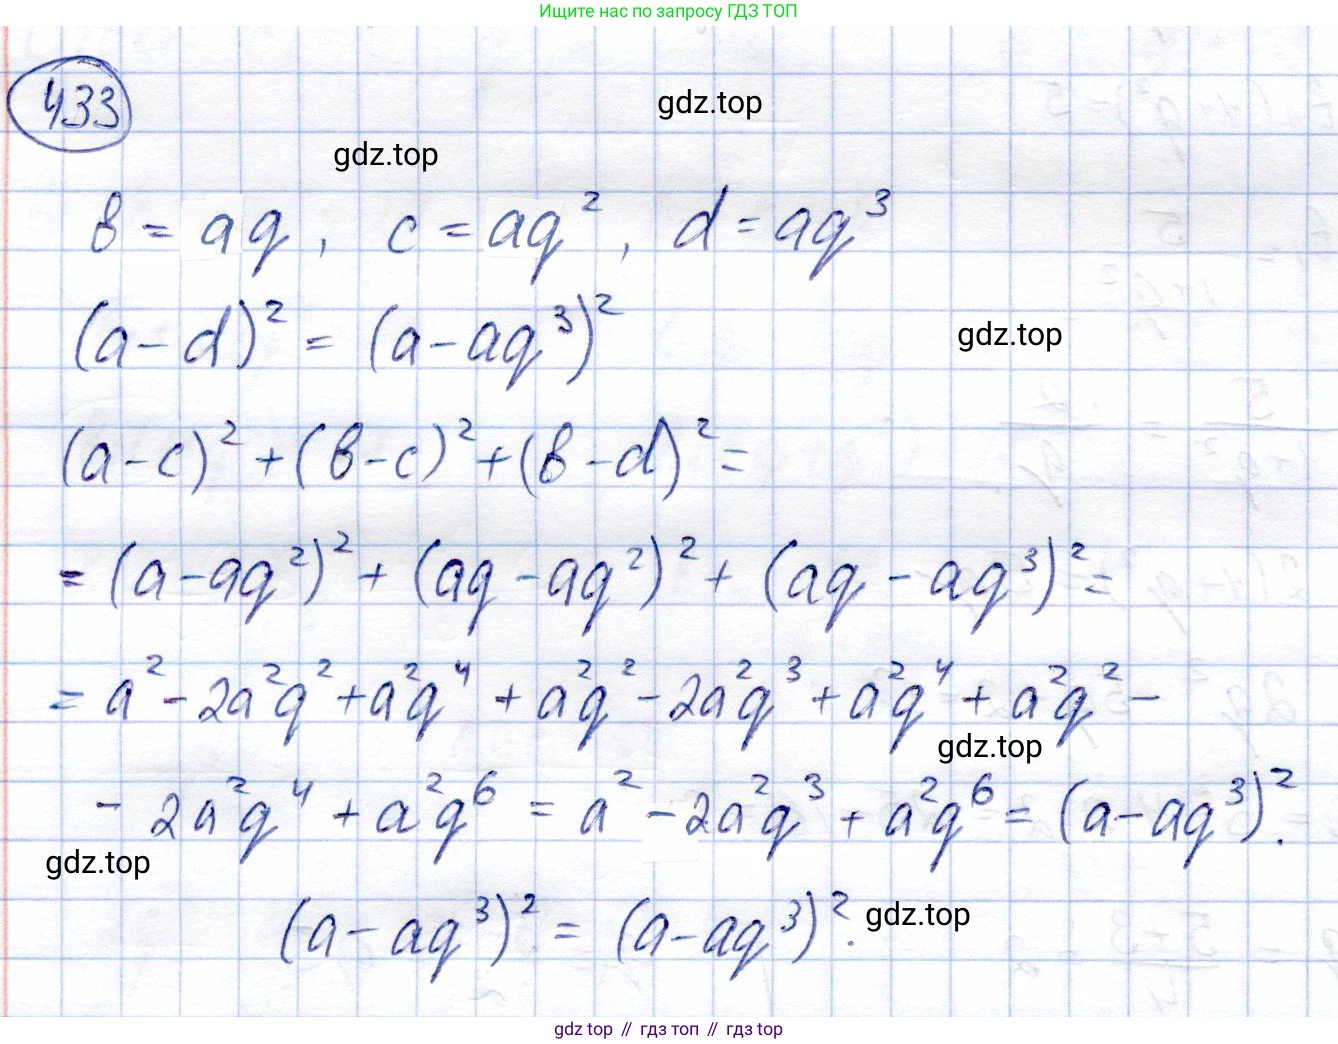 Ищите нас по запросу ГДЗ ТОП
433
gdz.top
gdz.top
в = aq, c = aq², d = aq³
(a-d)² = (a-aq³)²
gdz.top
(a-c)²+(в-c)²+(в-d)²=
= (a-aq²)² + (aq-aq²)² + (aq-aq³)² =
= a² - 2a²q² + a²q⁴ + a²q² - 2a²q³ + a²q⁴ + a²q² -
gdz.top
- 2a²q⁴ + a²q⁶ = a² - 2a²q³ + a²q⁶ = (a-aq³)².
gdz.top
(a-aq³)² = (a-aq³)².
gdz.top
gdz top // гдз топ // гдз top